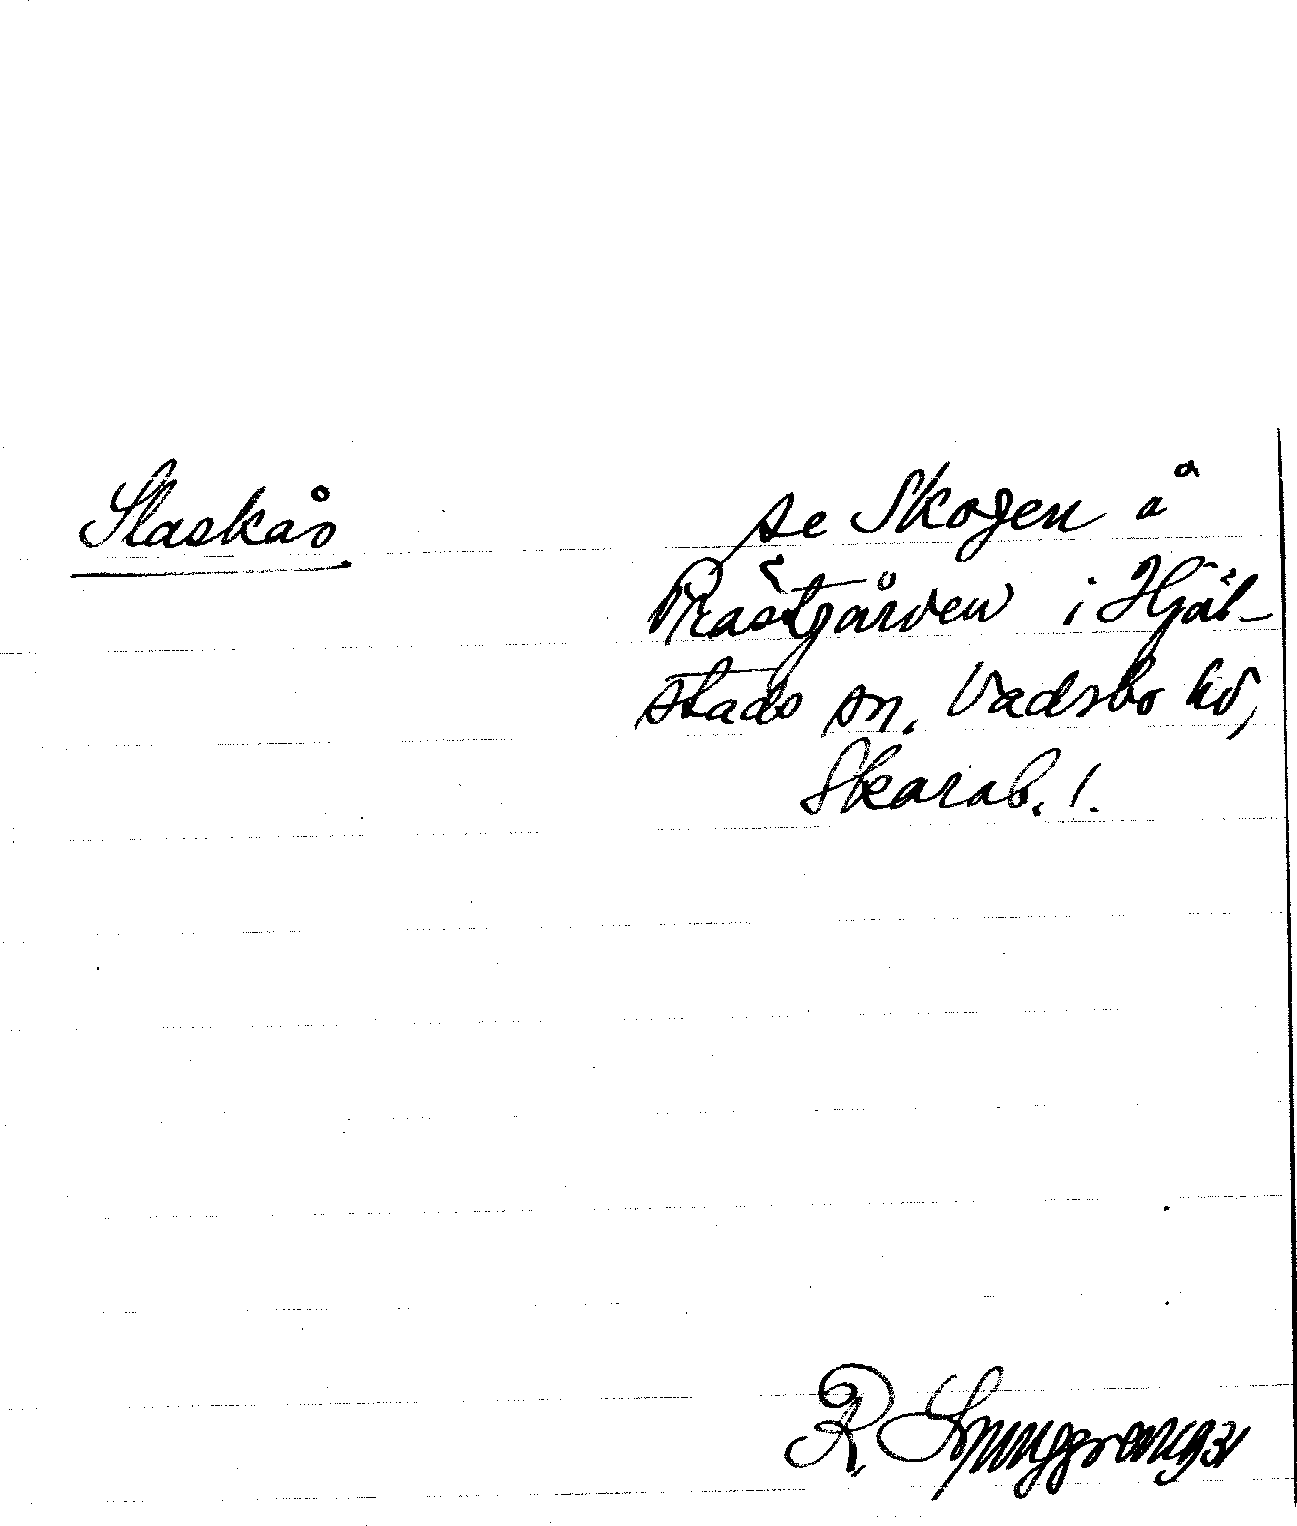 Slaskås
se Skogen å
Prästgården i Hjäl-
stads sn. Vadsbo hd,
Skarab. l.
R Ljunggren 1931